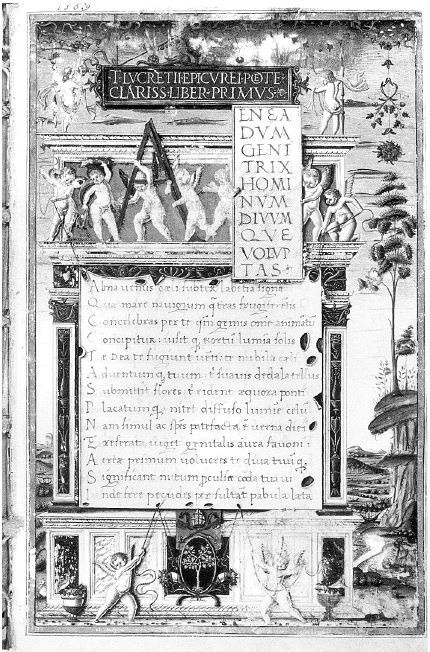 1569
T·LVCRETII·EPICVREI·POTE
CLARISS·LIBER·PRIMVS·
ENEA
DVM
GENI
TRIX
HOMI
NVM
DIVVM
QVE
VOLVP
TAS
Alma uenus cæli subter labētia signa
Quæ mare nauigerum q̃ terras frugiferētis
Concelebras per te qm̄ genus omē animātū
Concipitur: uisit q; exortū lumīa solis
Te Dea te fugiunt uenti te nubila cæli
Aduentum q; tuum: t suauis dædala tellus
Submittit flores: t rident æquora ponti
Placatum q; nitet diffuso lumīe celū
Nam simul ac spēs patefacta ē uerna diei
Et reserata uiget genitalis aura fauoni
Aeriæ primum uolucres te diua tuū q;
Significant initum perculsæ corda tua ui
Inde feræ pecudes persultāt pabula læta